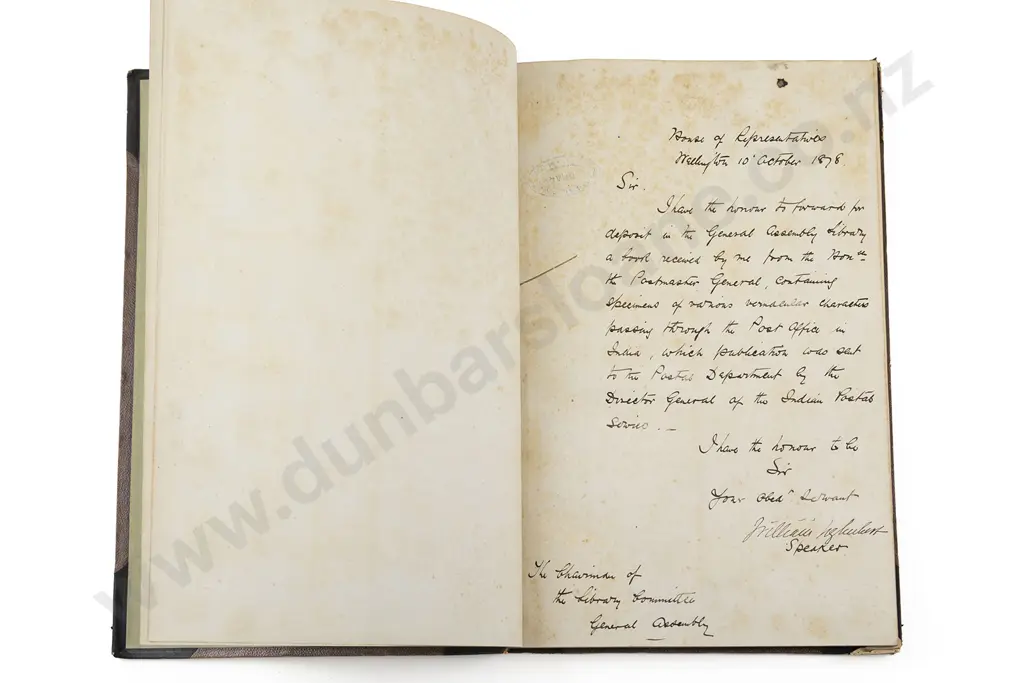 House of Representatives
Wellington 10 October 1878
Sir.
I have the honour to forward for
deposit in the General Assembly Library
a book received by me from the Hon^ble
the Postmaster General, containing
specimens of various vernacular characters
passing through the Post Office in
India, which publication was sent
to the Postal Department by the
Director General of the Indian Postal
Service. —
I have the honour to be
Sir
Your obed^t servant
William
Speaker
The Chairman of
the Library Committee
General Assembly
www.dunbarsloane.co.nz